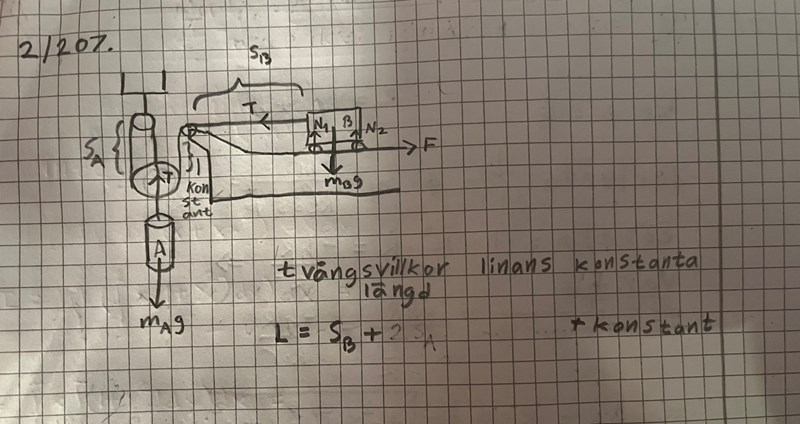 2/207.
S_B
T
N_1 B N_2
F
S_A
T
m_Bg
kon
st
ant
A
tvångsvillkor linans konstanta
längd
m_Ag
L = S_B + 2 S_A + konstant